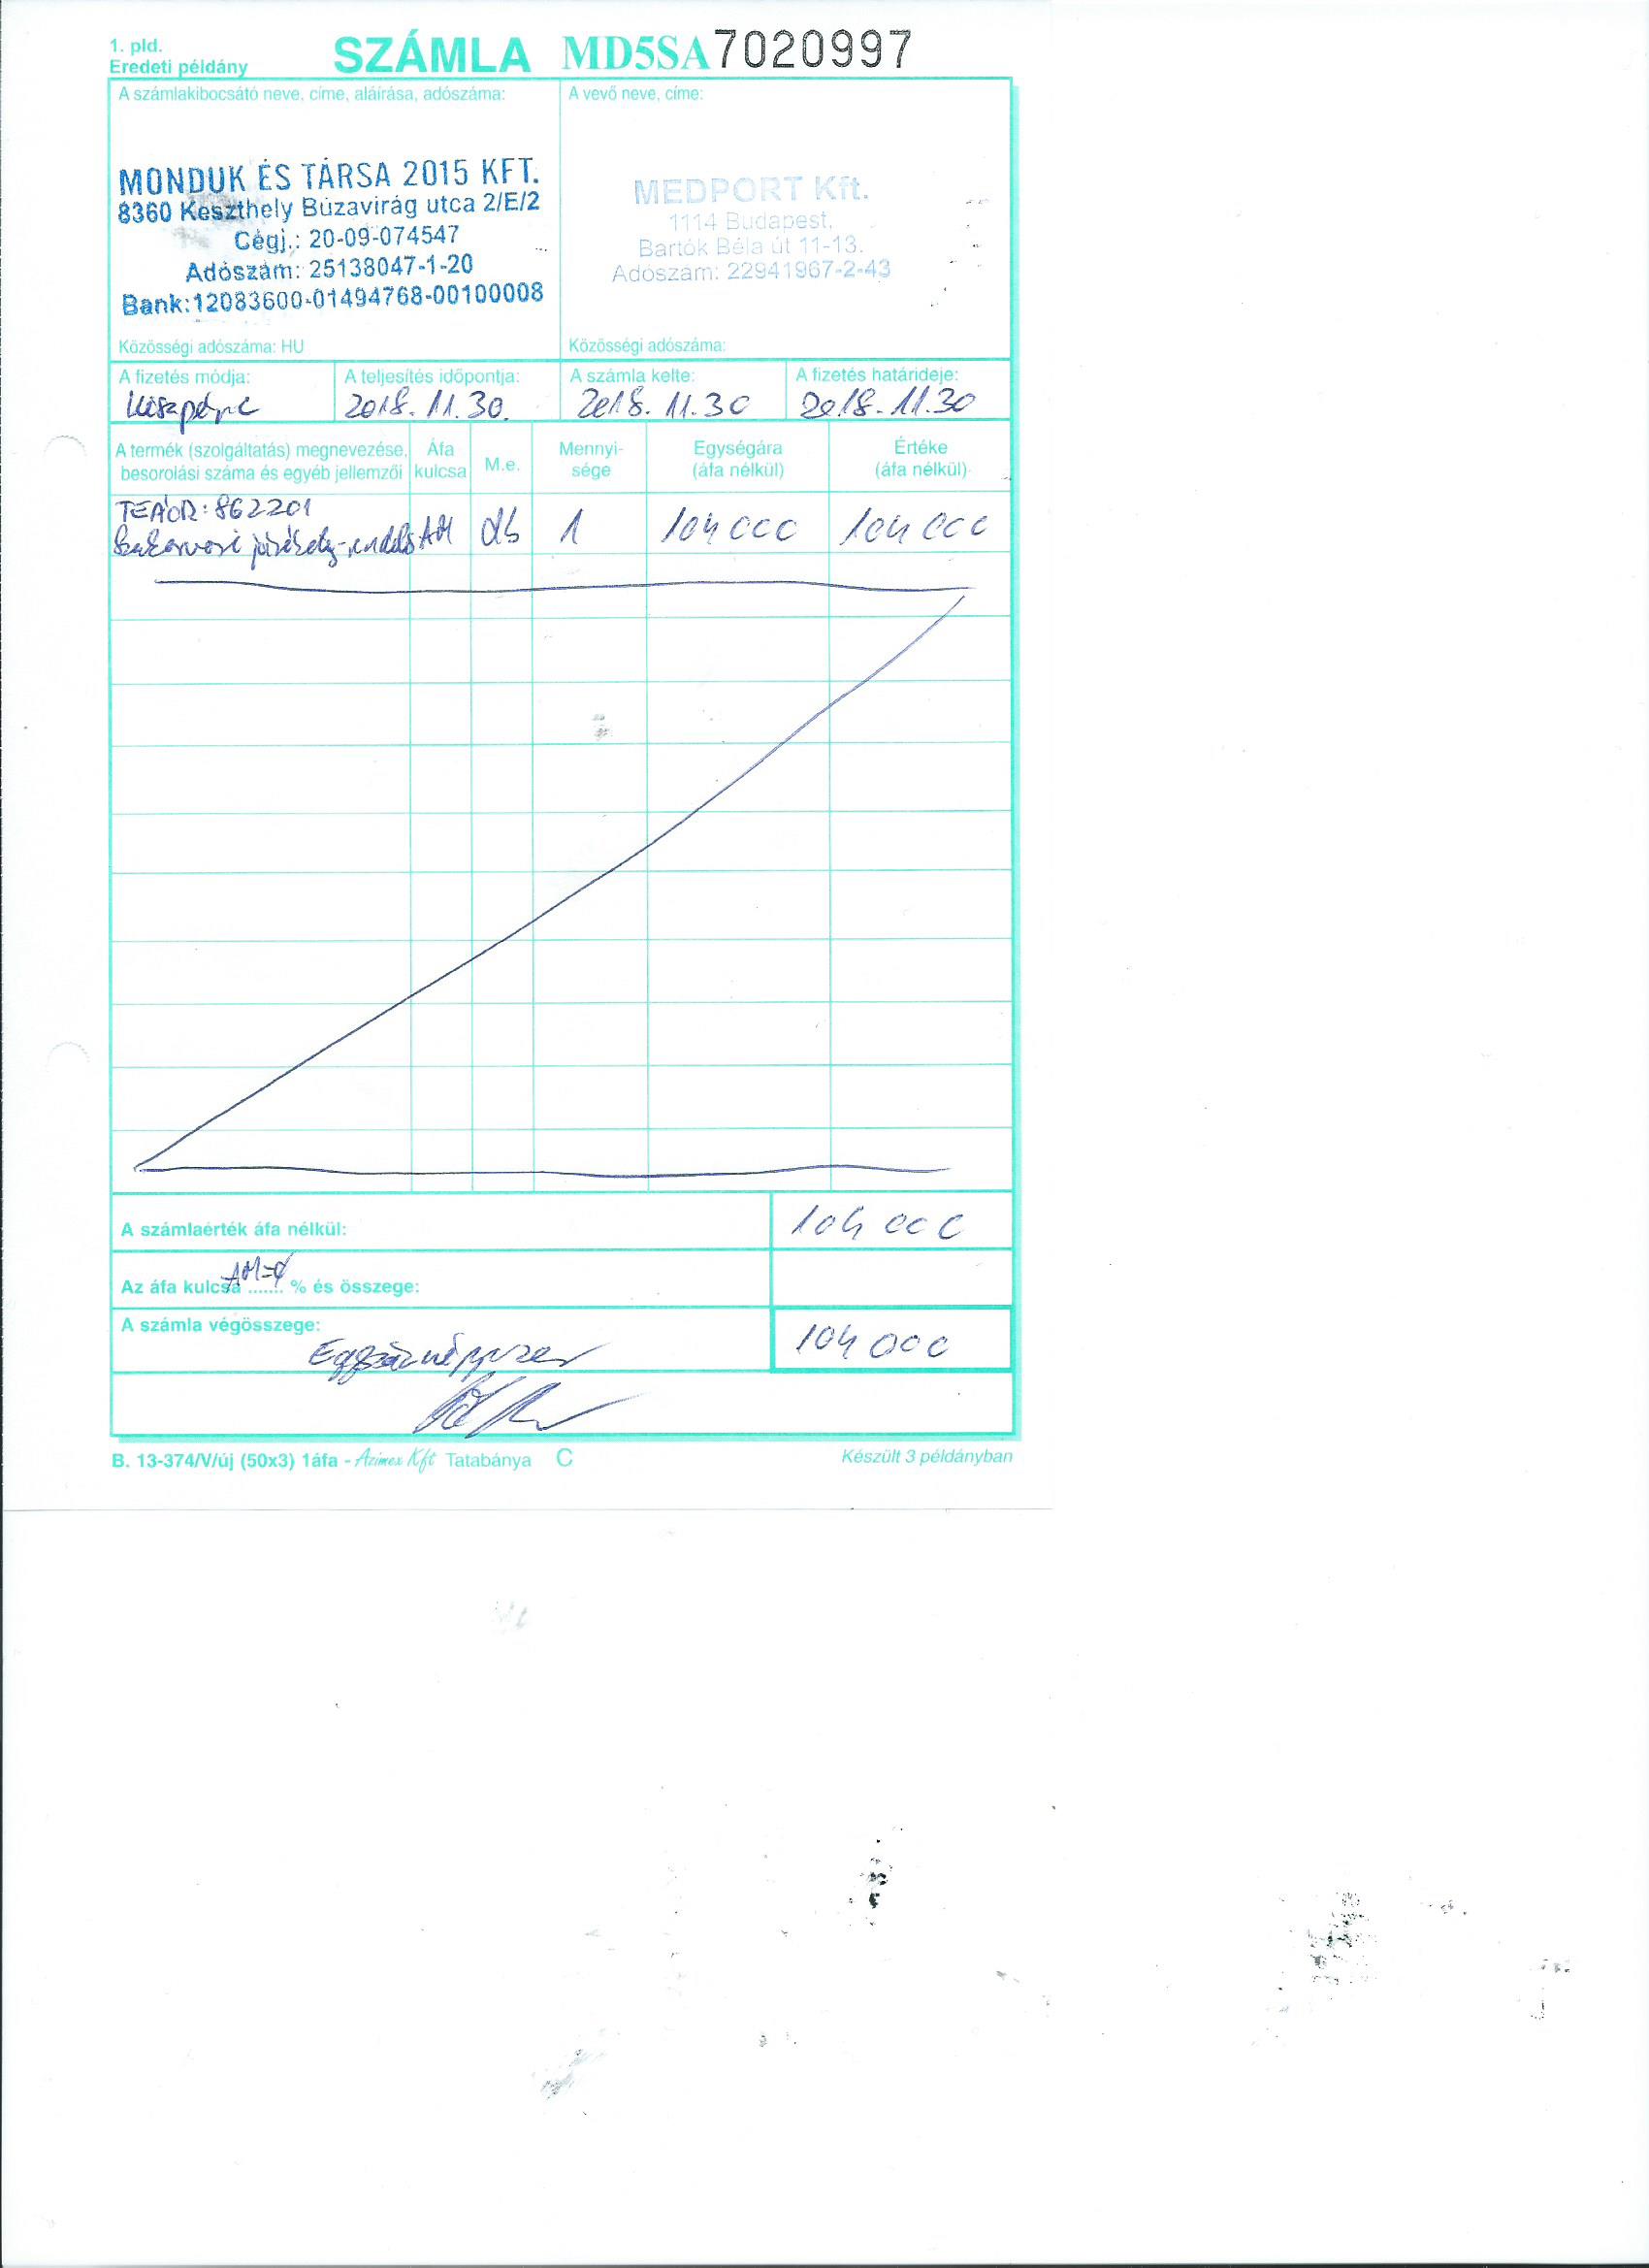 1. pld.
Eredeti példány
SZÁMLA MD5SA 7020997
A számlakibocsátó neve, címe, aláírása, adószáma:
MONDUK ÉS TÁRSA 2015 KFT.
8360 Keszthely Búzavirág utca 2/E/2
Cégj.: 20-09-074547
Adószám: 25138047-1-20
Bank:12083600-01494768-00100008
Közösségi adószáma: HU
A vevő neve, címe:
MEDPORT Kft.
1114 Budapest,
Bartók Béla út 11-13.
Adószám: 22941967-2-43
Közösségi adószáma:
A fizetés módja:
Készpénz
A teljesítés időpontja:
2018. 11. 30.
A számla kelte:
2018. 11. 30
A fizetés határideje:
2018. 11. 30
A termék (szolgáltatás) megnevezése, besorolási száma és egyéb jellemzői
Áfa kulcsa
M.e.
Mennyi-sége
Egységára (áfa nélkül)
Értéke (áfa nélkül)
TEÁOR: 862201
Szakorvosi járóbeteg-rendelés AM db 1 104 000 104 000
A számlaérték áfa nélkül: 104 000
Az áfa kulcsa AM=0 % és összege:
A számla végösszege: 104 000
Egyszáznégyezer
B. 13-374/V/új (50x3) 1áfa - Azimex Kft Tatabánya C
Készült 3 példányban